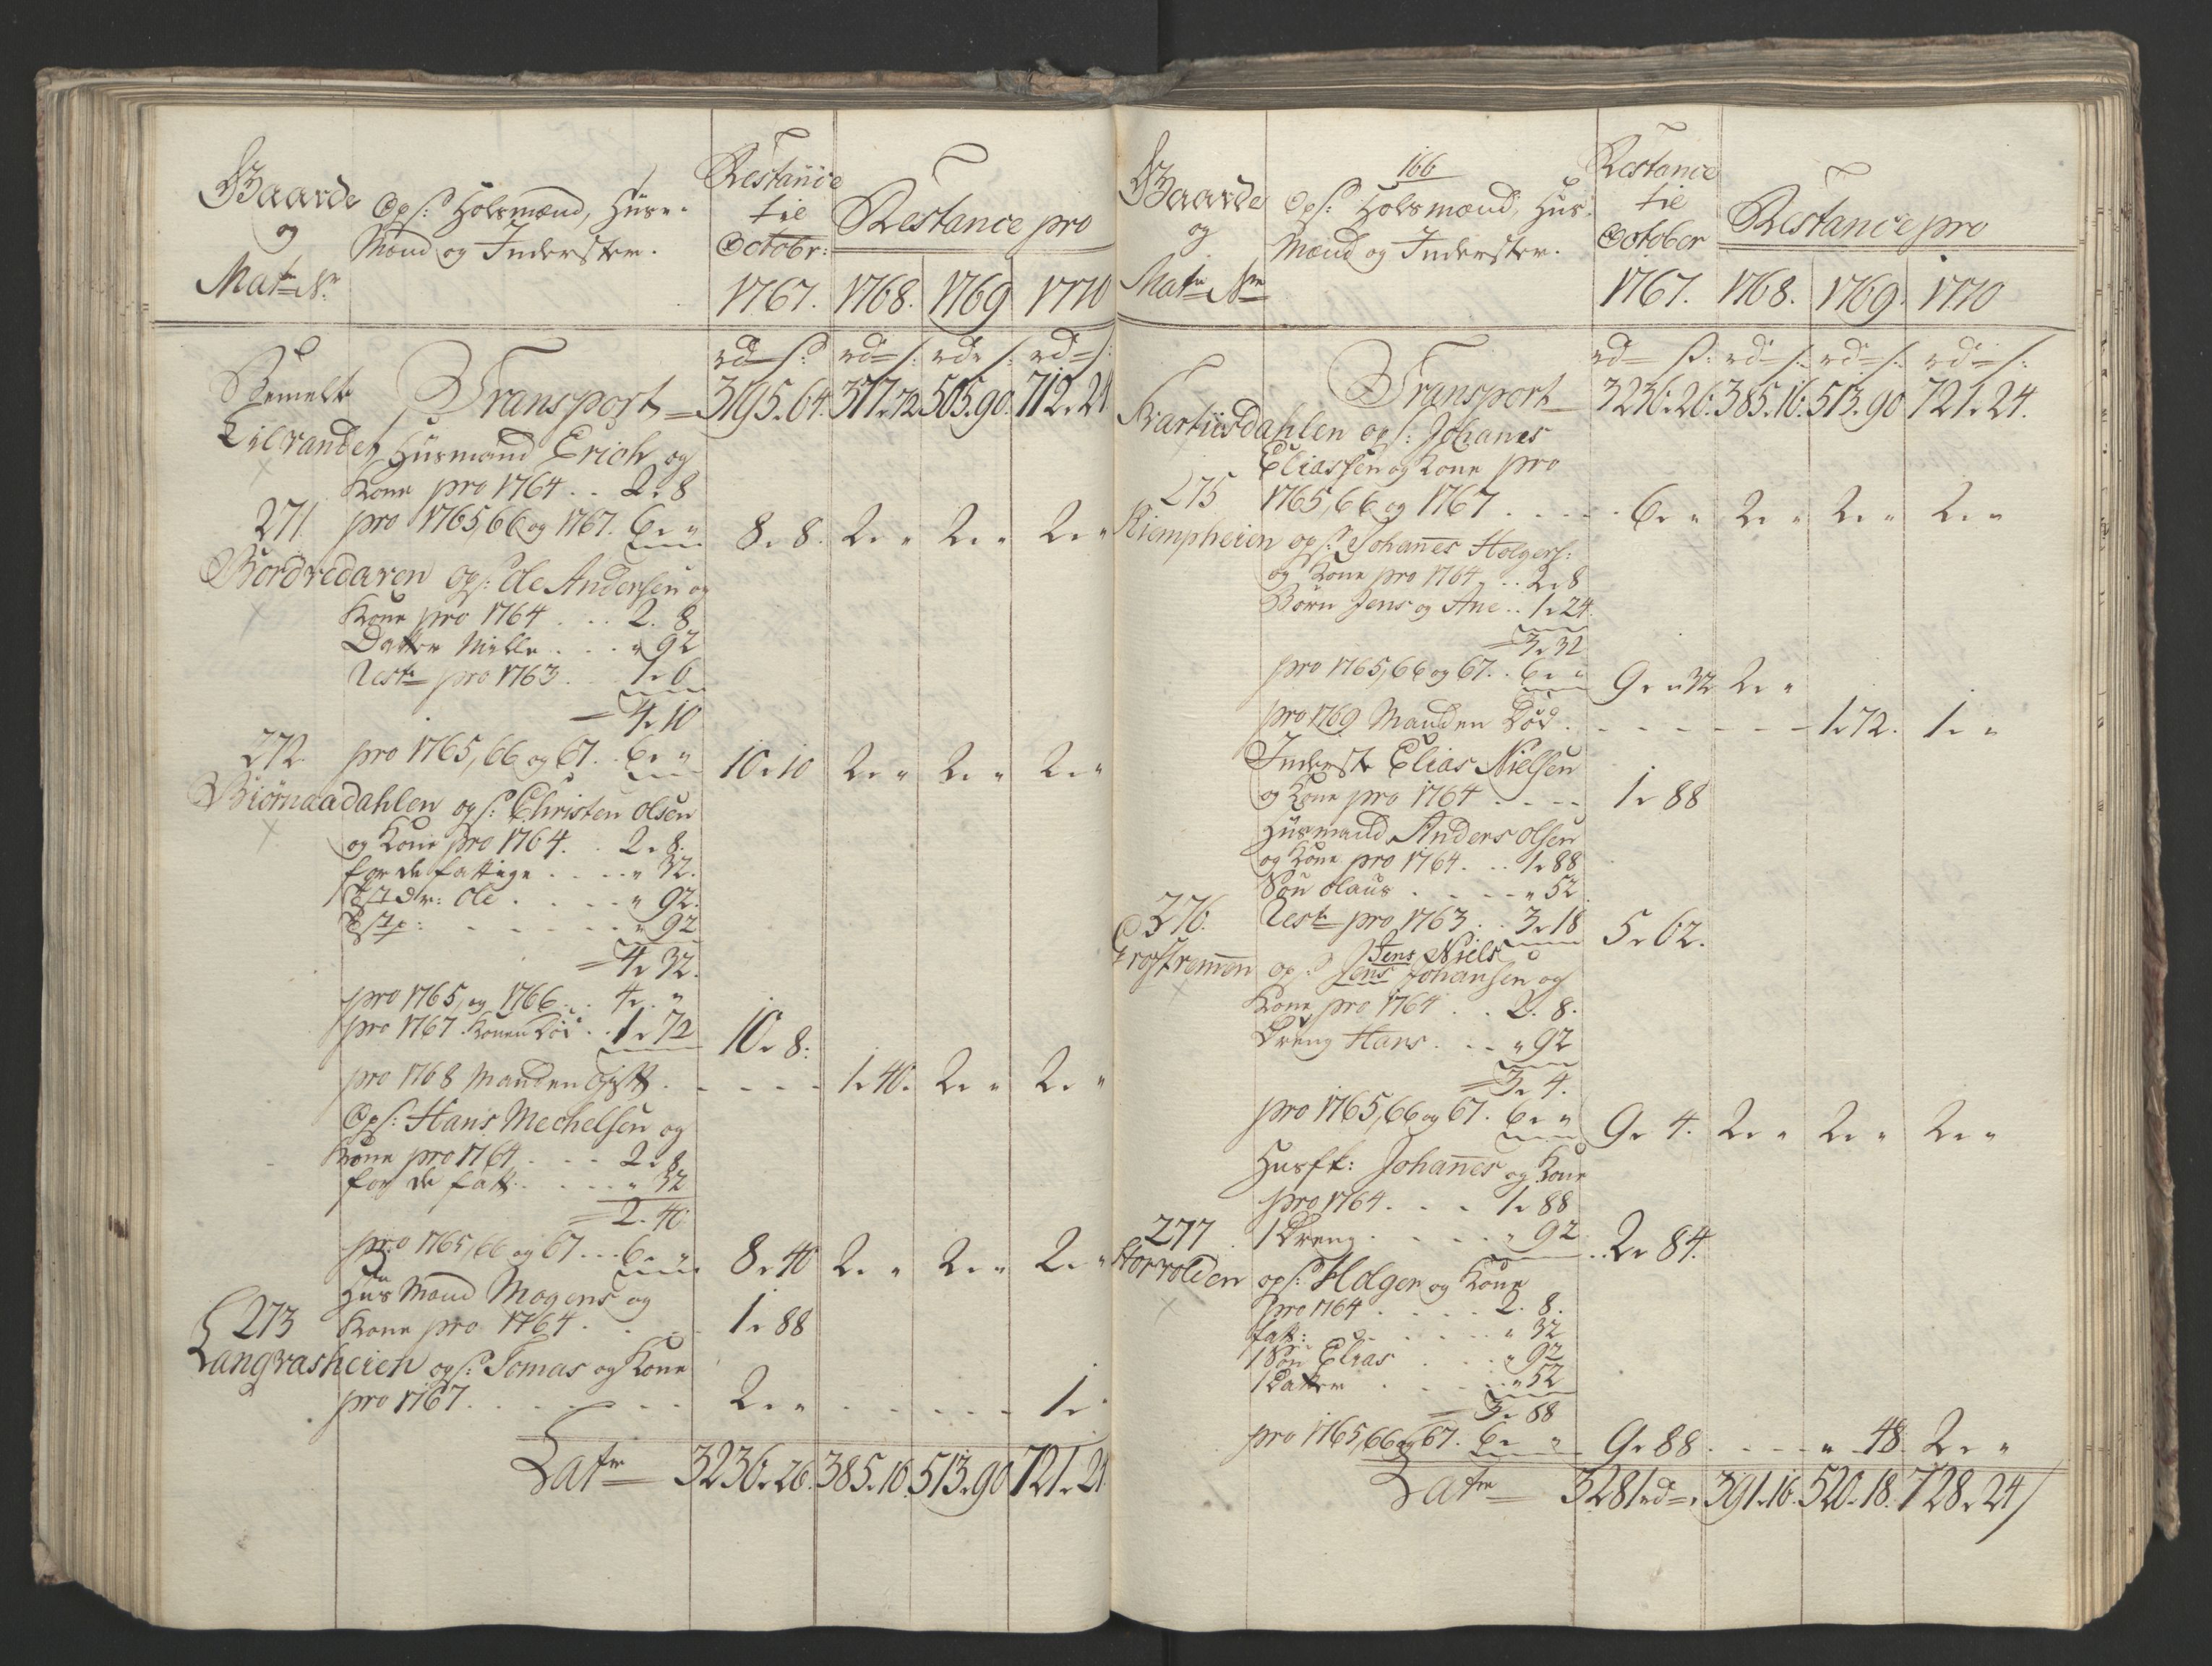 Gaarde
og
Matr N:
Ops: Holsmænd, Huse-
Mænd og Inderster.
Restance
til
Octobr:
1767.
Restance pro
1768. 1769 1770
rd s: rd s: rd s: rd s:
Transport 3195.64. 377.72. 505.90. 712.24
Husmand Erich og
Kone pro 1764 . . 2. 8
271. pro 1765, 66 og 1767. 6. " 8. 8. 2. " 2. " 2. "
Bordvedaren ops: Ole Andersen og
Kone pro 1764 . . . 2. 8
Datter Nille . . . " 92
Rest pro 1763 . 1. 6
= 4. 10
272. pro 1765, 66 og 67. 6. " 10. 10 2. " 2. " 2. "
Biørnaadahlen ops: Christen Olsen
og Kone pro 1764. . 2. 8.
for de fattige . . . . " 32.
Ole . . . . . " 92.
. . . . . . " 92
= 4. 32.
pro 1765, og 1766. . 4. "
pro 1767. Konen Død . . 1. 72 10. 8:
pro 1768 Manden gift . - - - - 1. 40. 2. " 2. "
Ops: Hans Mechelsen og
Kone pro 1764 . . . 2. 8
for de fatt. . . . . " 32
= 2. 40.
pro 1765, 66 og 67 . . . 6. " 8. 40 2. " 2. " 2. "
Hus Mand Mogens og
273 Kone pro 1764 . . . 1. 88
Langvasheien ops: Tomas og Kone
pro 1767 . . . . . . 2. " - - - - - 1. "
Latr 3236. 26. 385. 16. 513. 90 721. 24
166
Gaarde
og
Matr Nr
Ops: Holsmænd, Hus-
Mænd og Inderster.
Restance
til
October
1767.
Restance pro
1768. 1769. 1770
rd s: rd s: rd s: rd s:
Transport 3236. 26. 385. 16. 513. 90 721. 24.
ops: Johanes
Eliassen og Kone pro
275 1765, 66 og 1767 . . . . 6. " 2. " 2. " 2. "
ops: Johanes Holgers:
og Kone pro 1764 . . . 2. 8
Børn Jens og Ane . . 1. 24.
= 3. 32
pro 1765, 66 og 67. . 6. " 9. " 32 2. "
pro 1769 Manden Død . - - - - - - 1. 72. 1. "
Inderste Elias Nielsen
og Kone pro 1764 . . . . 1. 88
Husmand Anders Olsen
og Kone pro 1764. . . 1. 88
Søn Olaus . . . . " 52
276. Rest pro 1763 . . 3. 18 5. 62.
Jens Niels
ops: Jens Johansen og
Kone pro 1764 . . 2. 8.
Dreng Hans . . . " 92
= 3. 4.
pro 1765, 66 og 67. 6. " 9. 4. 2. " 2. " 2. "
Husfk: Johanes og Kone
pro 1764. . . . 1. 88
277 1 Dreng . . . . " 92 . . 2. 84.
Storvolden ops: Holger og Kone
pro 1764 . . . . . 2. 8.
fatt: . . . . . " 32
1 Søn Elias . . . " 92
1 Datter . . . . " 52
= 3. 88
pro 1765, 66 og 67. 6. " 9. 88 . - - - " 48. 2. "
Latr 3281 rd . 391. 16. 520. 18. 728. 24